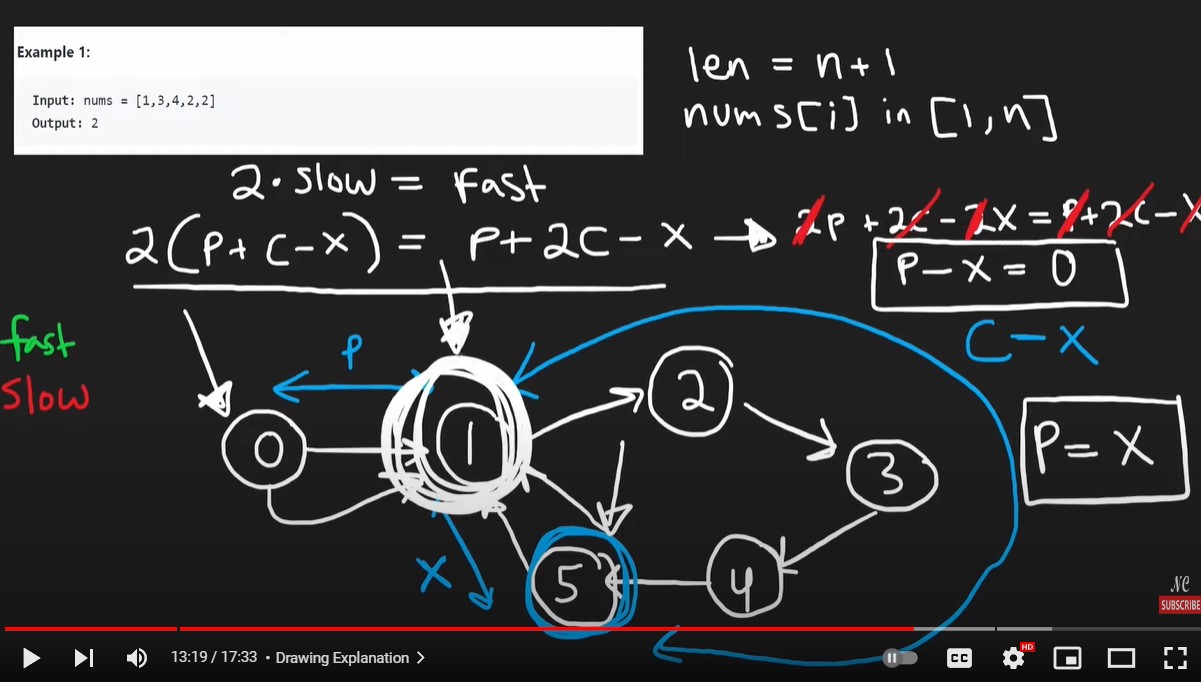 Example 1:
Input: nums = [1,3,4,2,2]
Output: 2
len = n+1
nums[i] in [1,n]
2·slow = fast
2(P+C-X) = P+2C-X → 2P+2C-2X=P+2C-X
P-X=0
fast
slow
P
C-X
P=X
0
1
2
3
4
5
X
NC
SUBSCRIBE
13:19 / 17:33 • Drawing Explanation >
CC
HD